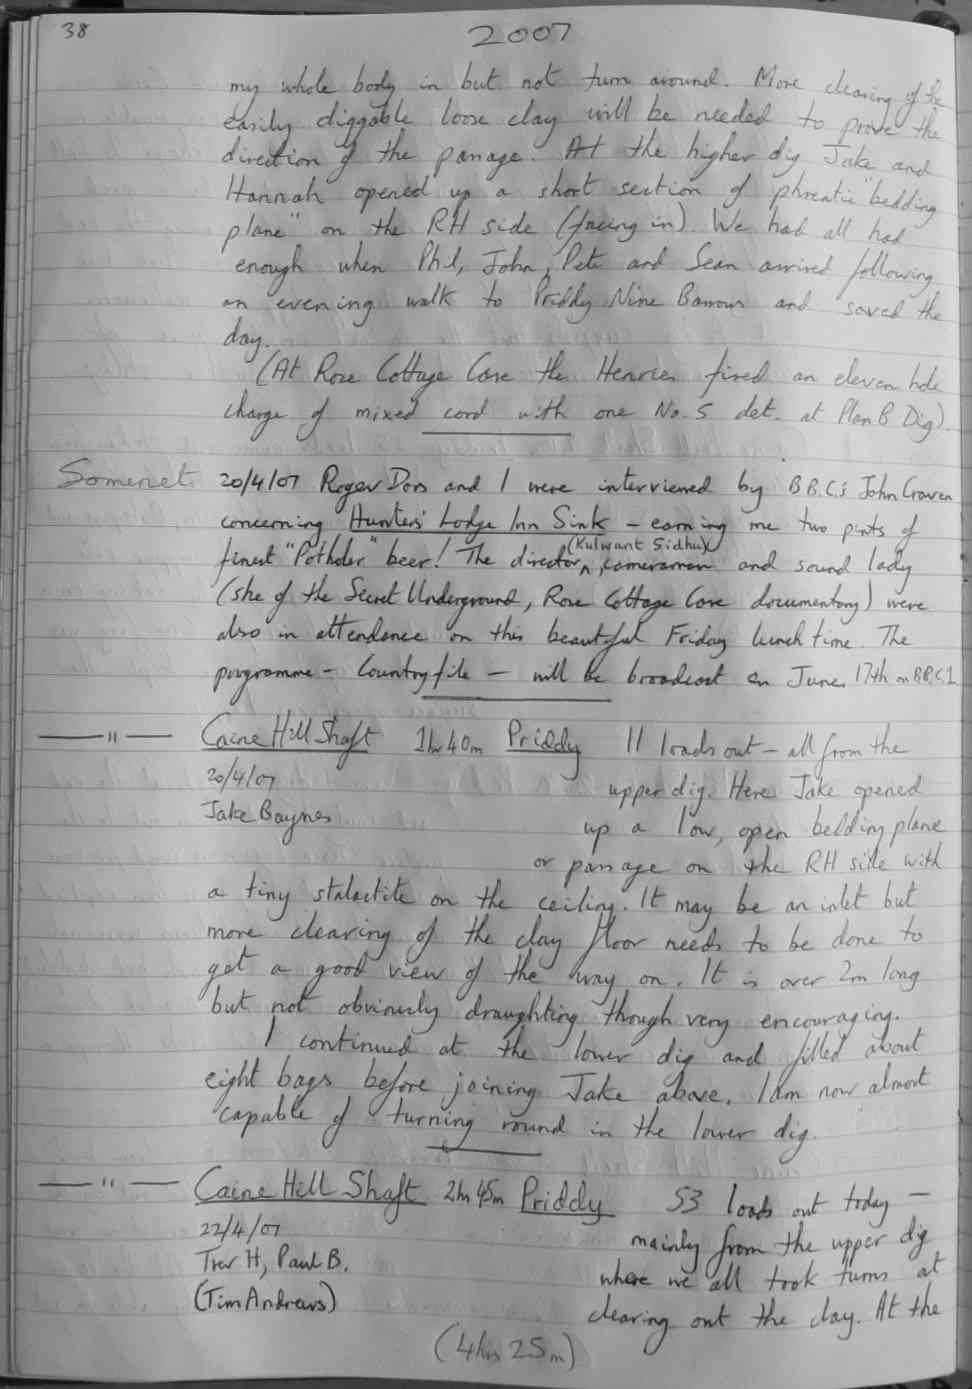 38
2007
my whole body in but not turn around. More clearing of the
easily diggable loose clay will be needed to prove the
direction of the passage. At the higher dig Jake and
Hannah opened up a short section of phreatic "bedding
plane" on the RH side (facing in). We had all had
enough when Phil, John, Pete and Sean arrived following
an evening walk to Priddy Nine Barrows and saved the
day.
(At Rose Cottage Cave the Henries fired an eleven hole
charge of mixed cord with one No. 5 det. at Plan B Dig).
Somerset. 20/4/07 Roger Dors and I were interviewed by B.B.C.'s John Craven
concerning Hunters' Lodge Inn Sink - earning me two pints of
finest "Potholer" beer! The director (Kulwant Sidhu), cameraman and sound lady
(she of the Secret Underground, Rose Cottage Cave documentary) were
also in attendance on this beautiful Friday lunch time. The
programme - Countryfile - will be broadcast on June 17th on BBC1
— " — Caine Hill Shaft 1hr 40m Priddy 11 loads out - all from the
20/4/07 upper dig. Here Jake opened
Jake Baynes up a low, open bedding plane
or passage on the RH side with
a tiny stalactite on the ceiling. It may be an inlet but
more clearing of the clay floor needs to be done to
get a good view of the way on. It is over 2m long
but not obviously draughting though very encouraging.
I continued at the lower dig and filled about
eight bags before joining Jake above. I am now almost
capable of turning round in the lower dig.
— " — Caine Hill Shaft 2hr 45m Priddy 53 loads out today -
22/4/07 mainly from the upper dig
Trev H, Paul B. where we all took turns at
(Tim Andrews) clearing out the clay. At the
(4hrs 25m)